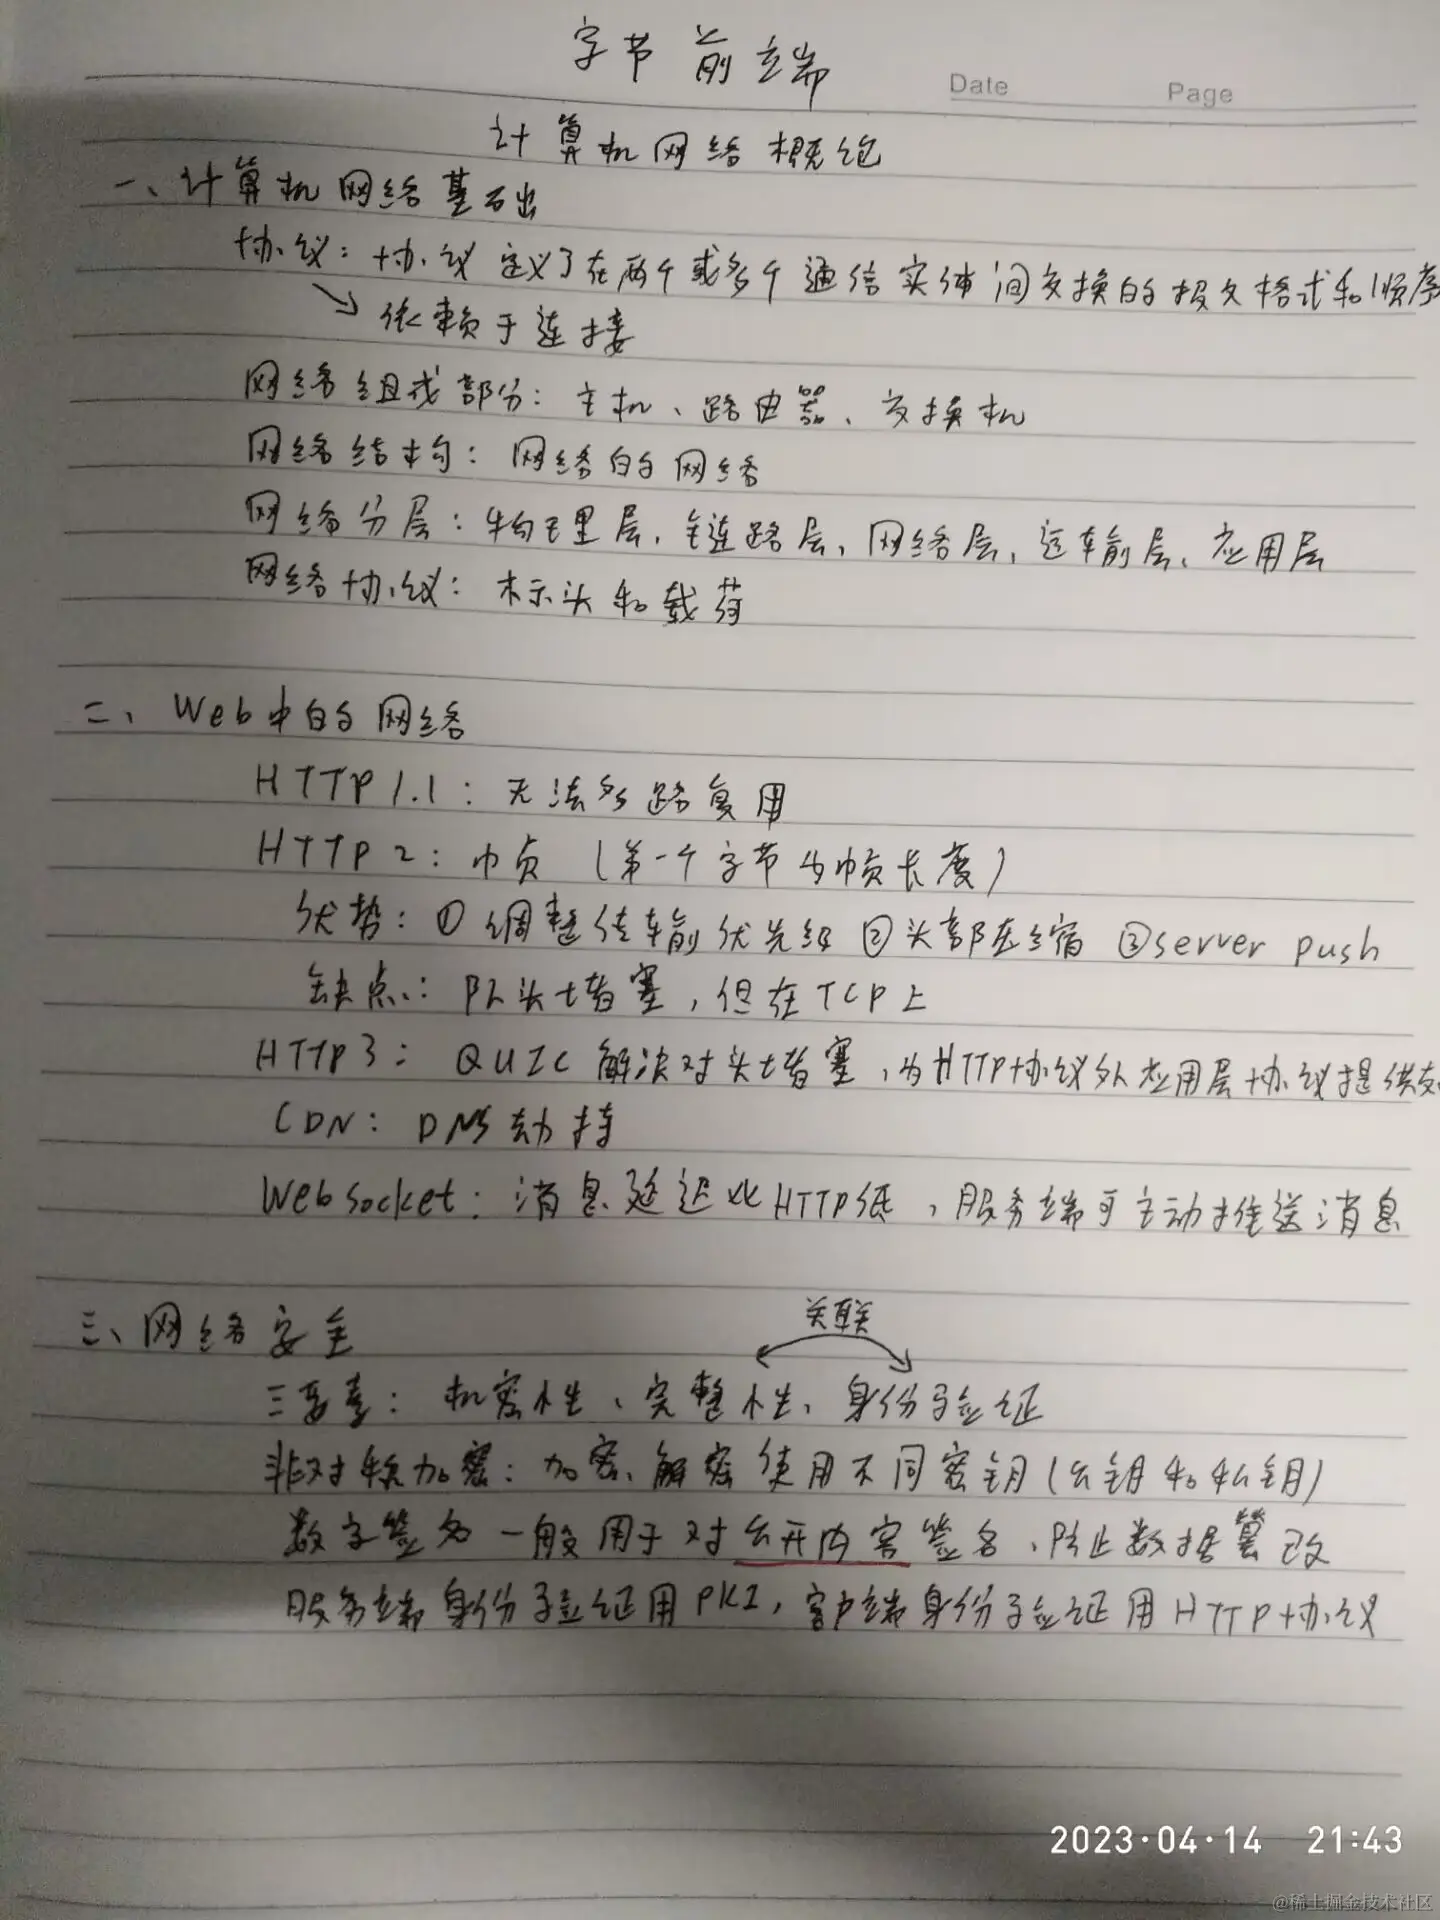 字节前端
Date Page
计算机网络概览
一、计算机网络基础
协议：协议定义了在两个或多个通信实体间交换的报文格式和顺序
依赖于连接
网络组成部分：主机、路由器、交换机
网络结构：网络的网络
网络分层：物理层、链路层、网络层、运输层、应用层
网络协议：标头和载荷
二、Web中的网络
HTTP1.1：无法多路复用
HTTP2：帧（第一个字节为帧长度）
优势：①调整传输优先级 ②头部压缩 ③server push
缺点：队头堵塞，但在TCP上
HTTP3：QUIC解决对头堵塞，为HTTP协议外应用层协议提供支
CDN：DNS劫持
WebSocket：消息延迟比HTTP低，服务端可主动推送消息
三、网络安全
关联
三要素：机密性、完整性、身份验证
非对称加密：加密、解密使用不同密钥(公钥和私钥)
数字签名一般用于对公开内容签名、防止数据篡改
服务端身份验证用PKI，客户端身份验证用HTTP协议
2023·04·14 21:43
@稀土掘金技术社区